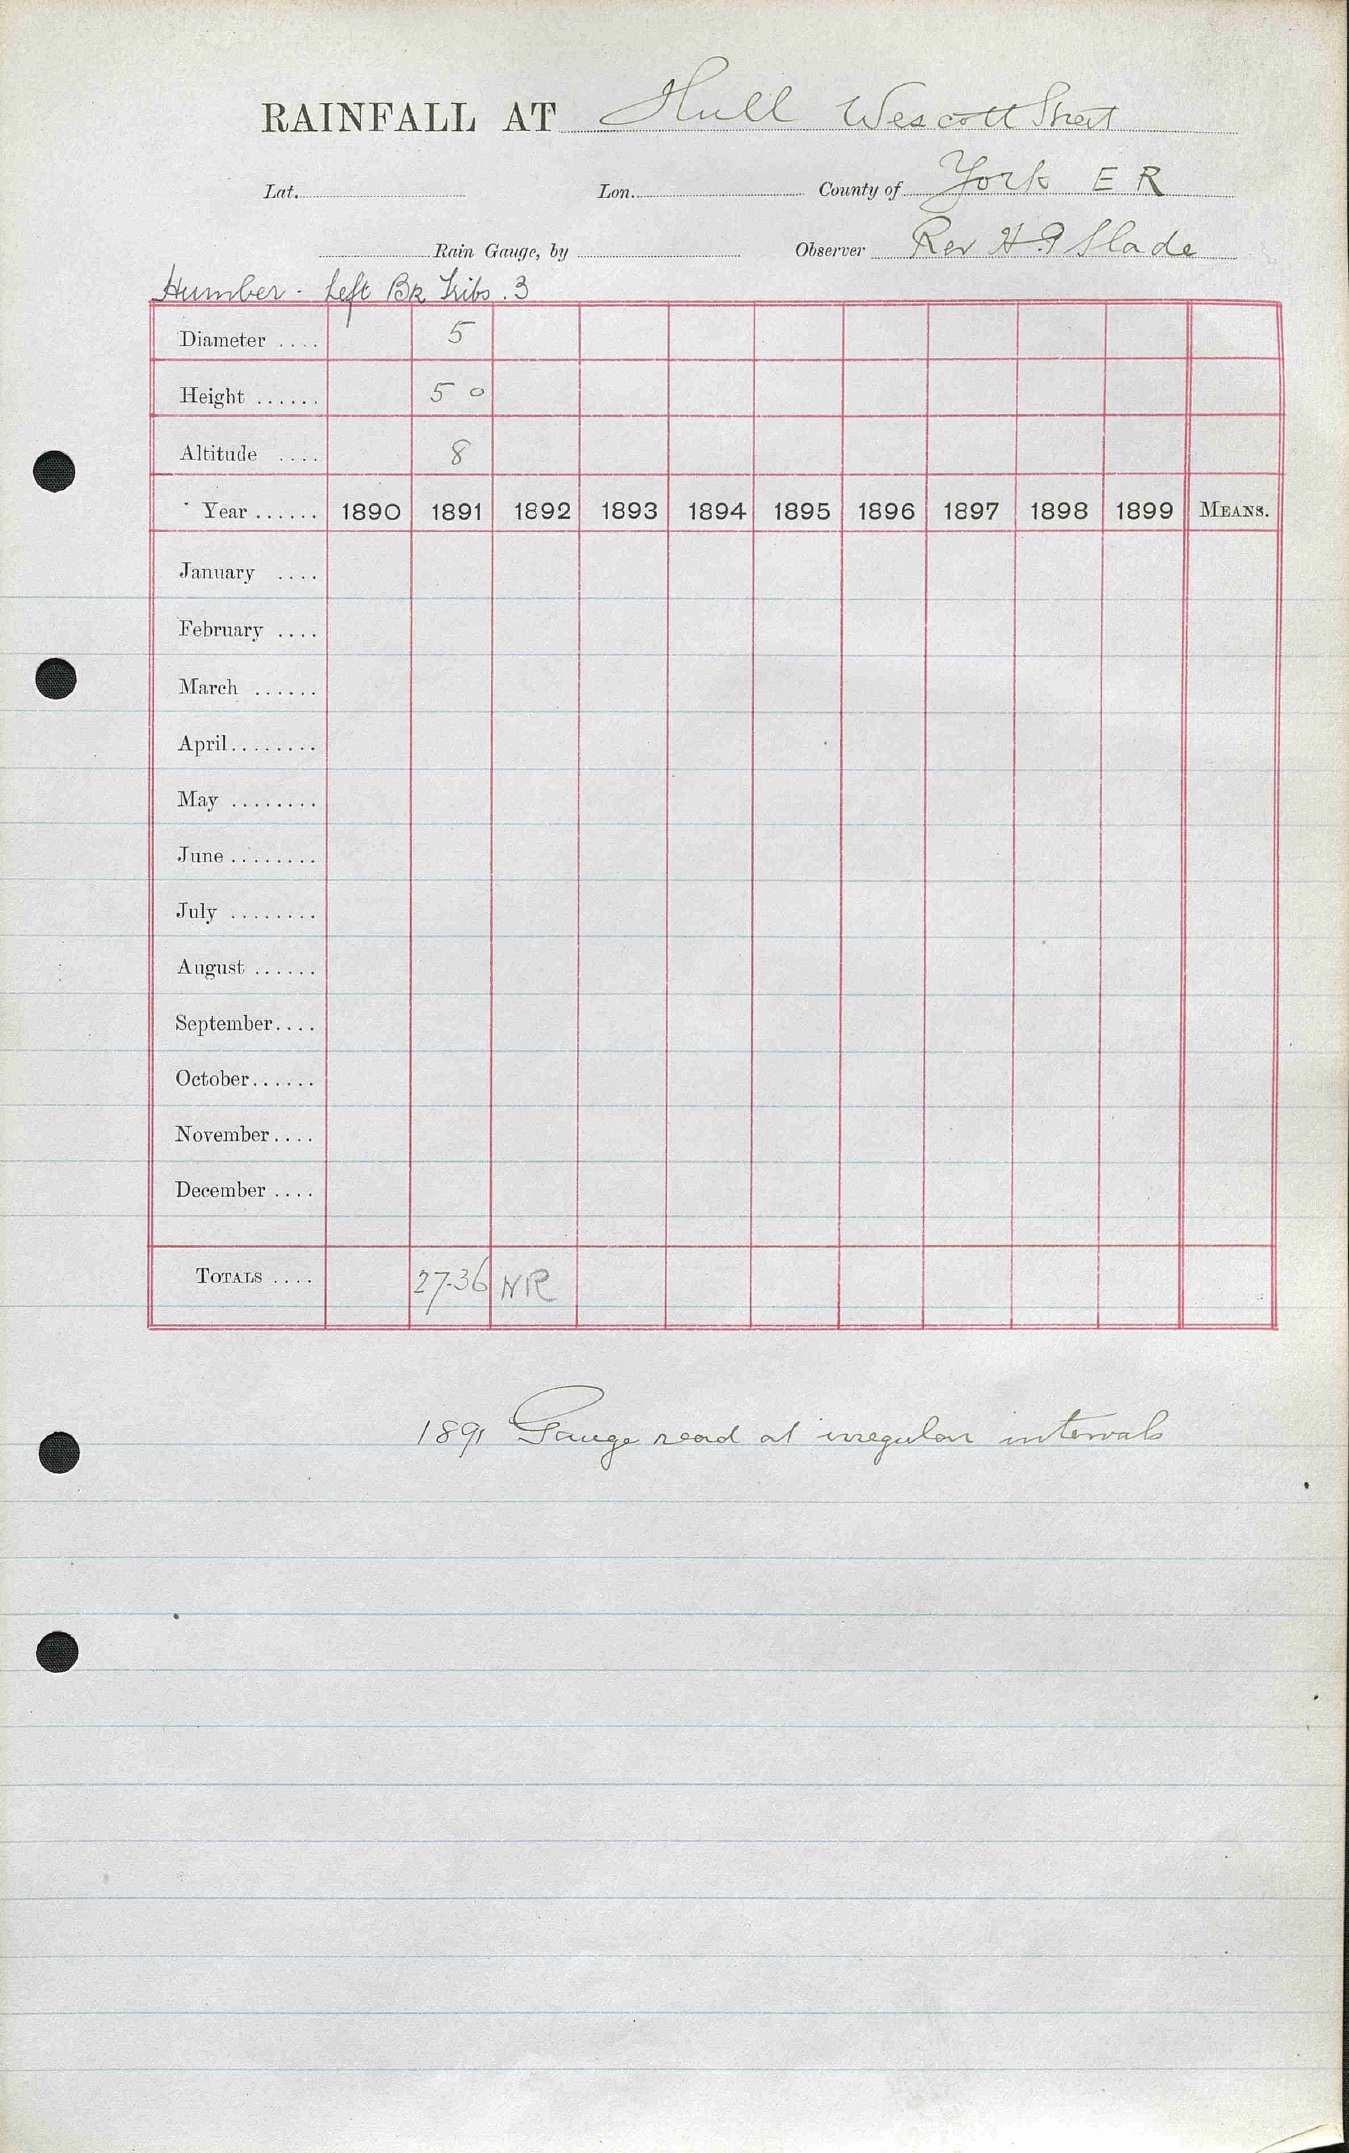 RAINFALL AT Hull Wescott Street
Lat. Lon. County of York E R
Rain Gauge, by Observer Rev H P Slade
Humber - Left Bk Tribs. 3
Diameter .... 5
Height ...... 5 0
Altitude .... 8
Year ...... 1890 1891 1892 1893 1894 1895 1896 1897 1898 1899 MEANS.
January ....
February ....
March ......
April........
May ........
June ........
July ........
August ......
September....
October......
November....
December ....
TOTALS .... 27.36 NR
1891 Gauge read at irregular intervals